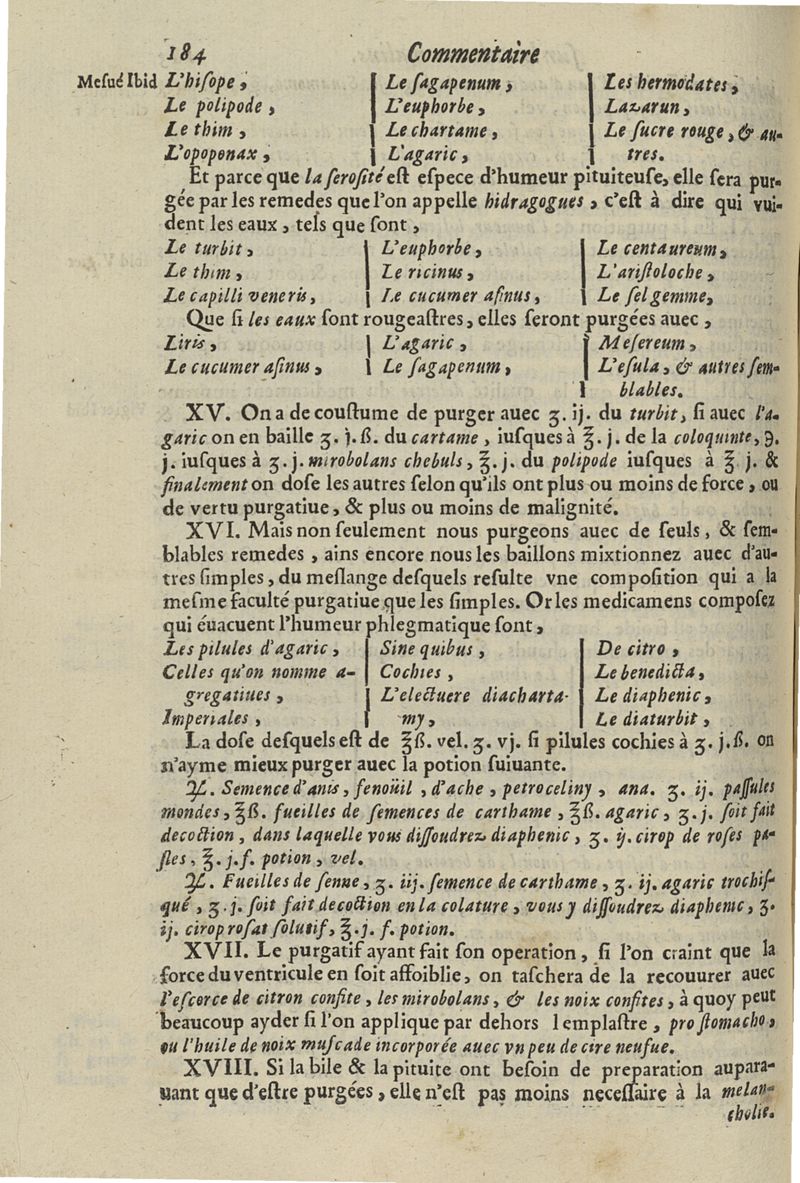 184 Commentaire
Mesué Ibid L'hisope, Le sagapenum, Les hermodates,
Le polipode, L'euphorbe, Lazarun,
Le thim, Le chartame, Le sucre rouge, & au-
L'opoponax, L'agaric, tres.
Et parce que la serosité est espece d'humeur pituiteuse, elle sera pur-
gée par les remedes que l'on appelle hidragogues, c'est à dire qui vui-
dent les eaux, tels que sont,
Le turbit, L'euphorbe, Le centaureum,
Le thim, Le ricinus, L'aristoloche,
Le capilli veneris, Le cucumer asinus, Le sel gemme,
Que si les eaux sont rougeastres, elles seront purgées auec,
L'iris, L'agaric, Mesereum,
Le cucumer asinus, Le sagapenum, L'esula, & autres sem-
blables.
XV. On a de coustume de purger auec ʒ. ij. du turbit, si auec l'a-
garic on en baille ʒ. j. ß. du cartame, iusques à ℥. j. de la coloquinte, ℈.
j. iusques à ʒ. j. mirobolans chebuls, ℥. j. du polipode iusques à ℥ j. &
finalement on dose les autres selon qu'ils ont plus ou moins de force, ou
de vertu purgatiue, & plus ou moins de malignité.
XVI. Mais non seulement nous purgeons auec de seuls, & sem-
blables remedes, ains encore nous les baillons mixtionnez auec d'au-
tres simples, du meslange desquels resulte vne composition qui a la
mesme faculté purgatiue que les simples. Or les medicamens composez
qui éuacuent l'humeur phlegmatique sont,
Les pilules d'agaric, Sine quibus, De citro,
Celles qu'on nomme a- Cochies, Le benedicta,
gregatiues, L'electuere diacharta- Le diaphenic,
Imperiales, my, Le diaturbit,
La dose desquels est de ℥ß. vel. ʒ. vj. si pilules cochies à ʒ. j. ß. on
n'ayme mieux purger auec la potion suiuante.
♃. Semence d'anis, fenoüil, d'ache, petroceliny, ana. ʒ. ij. passules
mondes, ℥ß. fueilles de semences de carthame, ℥ß. agaric, ʒ. j. soit fait
decoction, dans laquelle vous dissoudrez diaphenic, ʒ. ij. cirop de roses pa-
sles, ℥. j. f. potion, vel.
♃. Fueilles de senne, ʒ. iij. semence de carthame, ʒ. ij. agaric trochis-
qué, ʒ. j. soit fait decoction en la colature, vous y dissoudrez diaphenic, ʒ.
ij. cirop rosat solutif, ℥. j. f. potion.
XVII. Le purgatif ayant fait son operation, si l'on craint que la
force du ventricule en soit affoiblie, on taschera de la recouurer auec
l'escorce de citron confite, les mirobolans, & les noix confites, à quoy peut
beaucoup ayder si l'on applique par dehors l emplastre, pro stomacho,
ou l'huile de noix muscade incorporée auec vn peu de cire neufue.
XVIII. Si la bile & la pituite ont besoin de preparation aupara-
uant que d'estre purgées, elle n'est pas moins necessaire à la melan-
cholie.